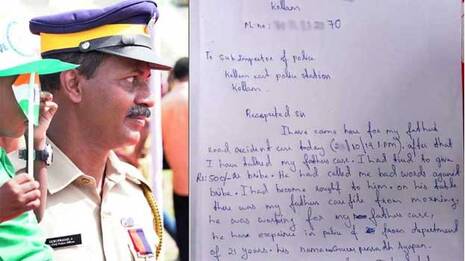 Kollam
Ph no: 70
To Sub Inspector of police
Kollam east police station
Kollam.
Respected sir
I have came here for my father
road accident case today ( 10/19 1.PM). after that
I have talked my fathers case. I had tried to give
Rs: 500/- as bribe. He had called me bad words against
bribe. I had become rought to him. on his table
there was my father casfile from morning,
he was working for my father case,
he have experince in police from department
of 21 years. his name